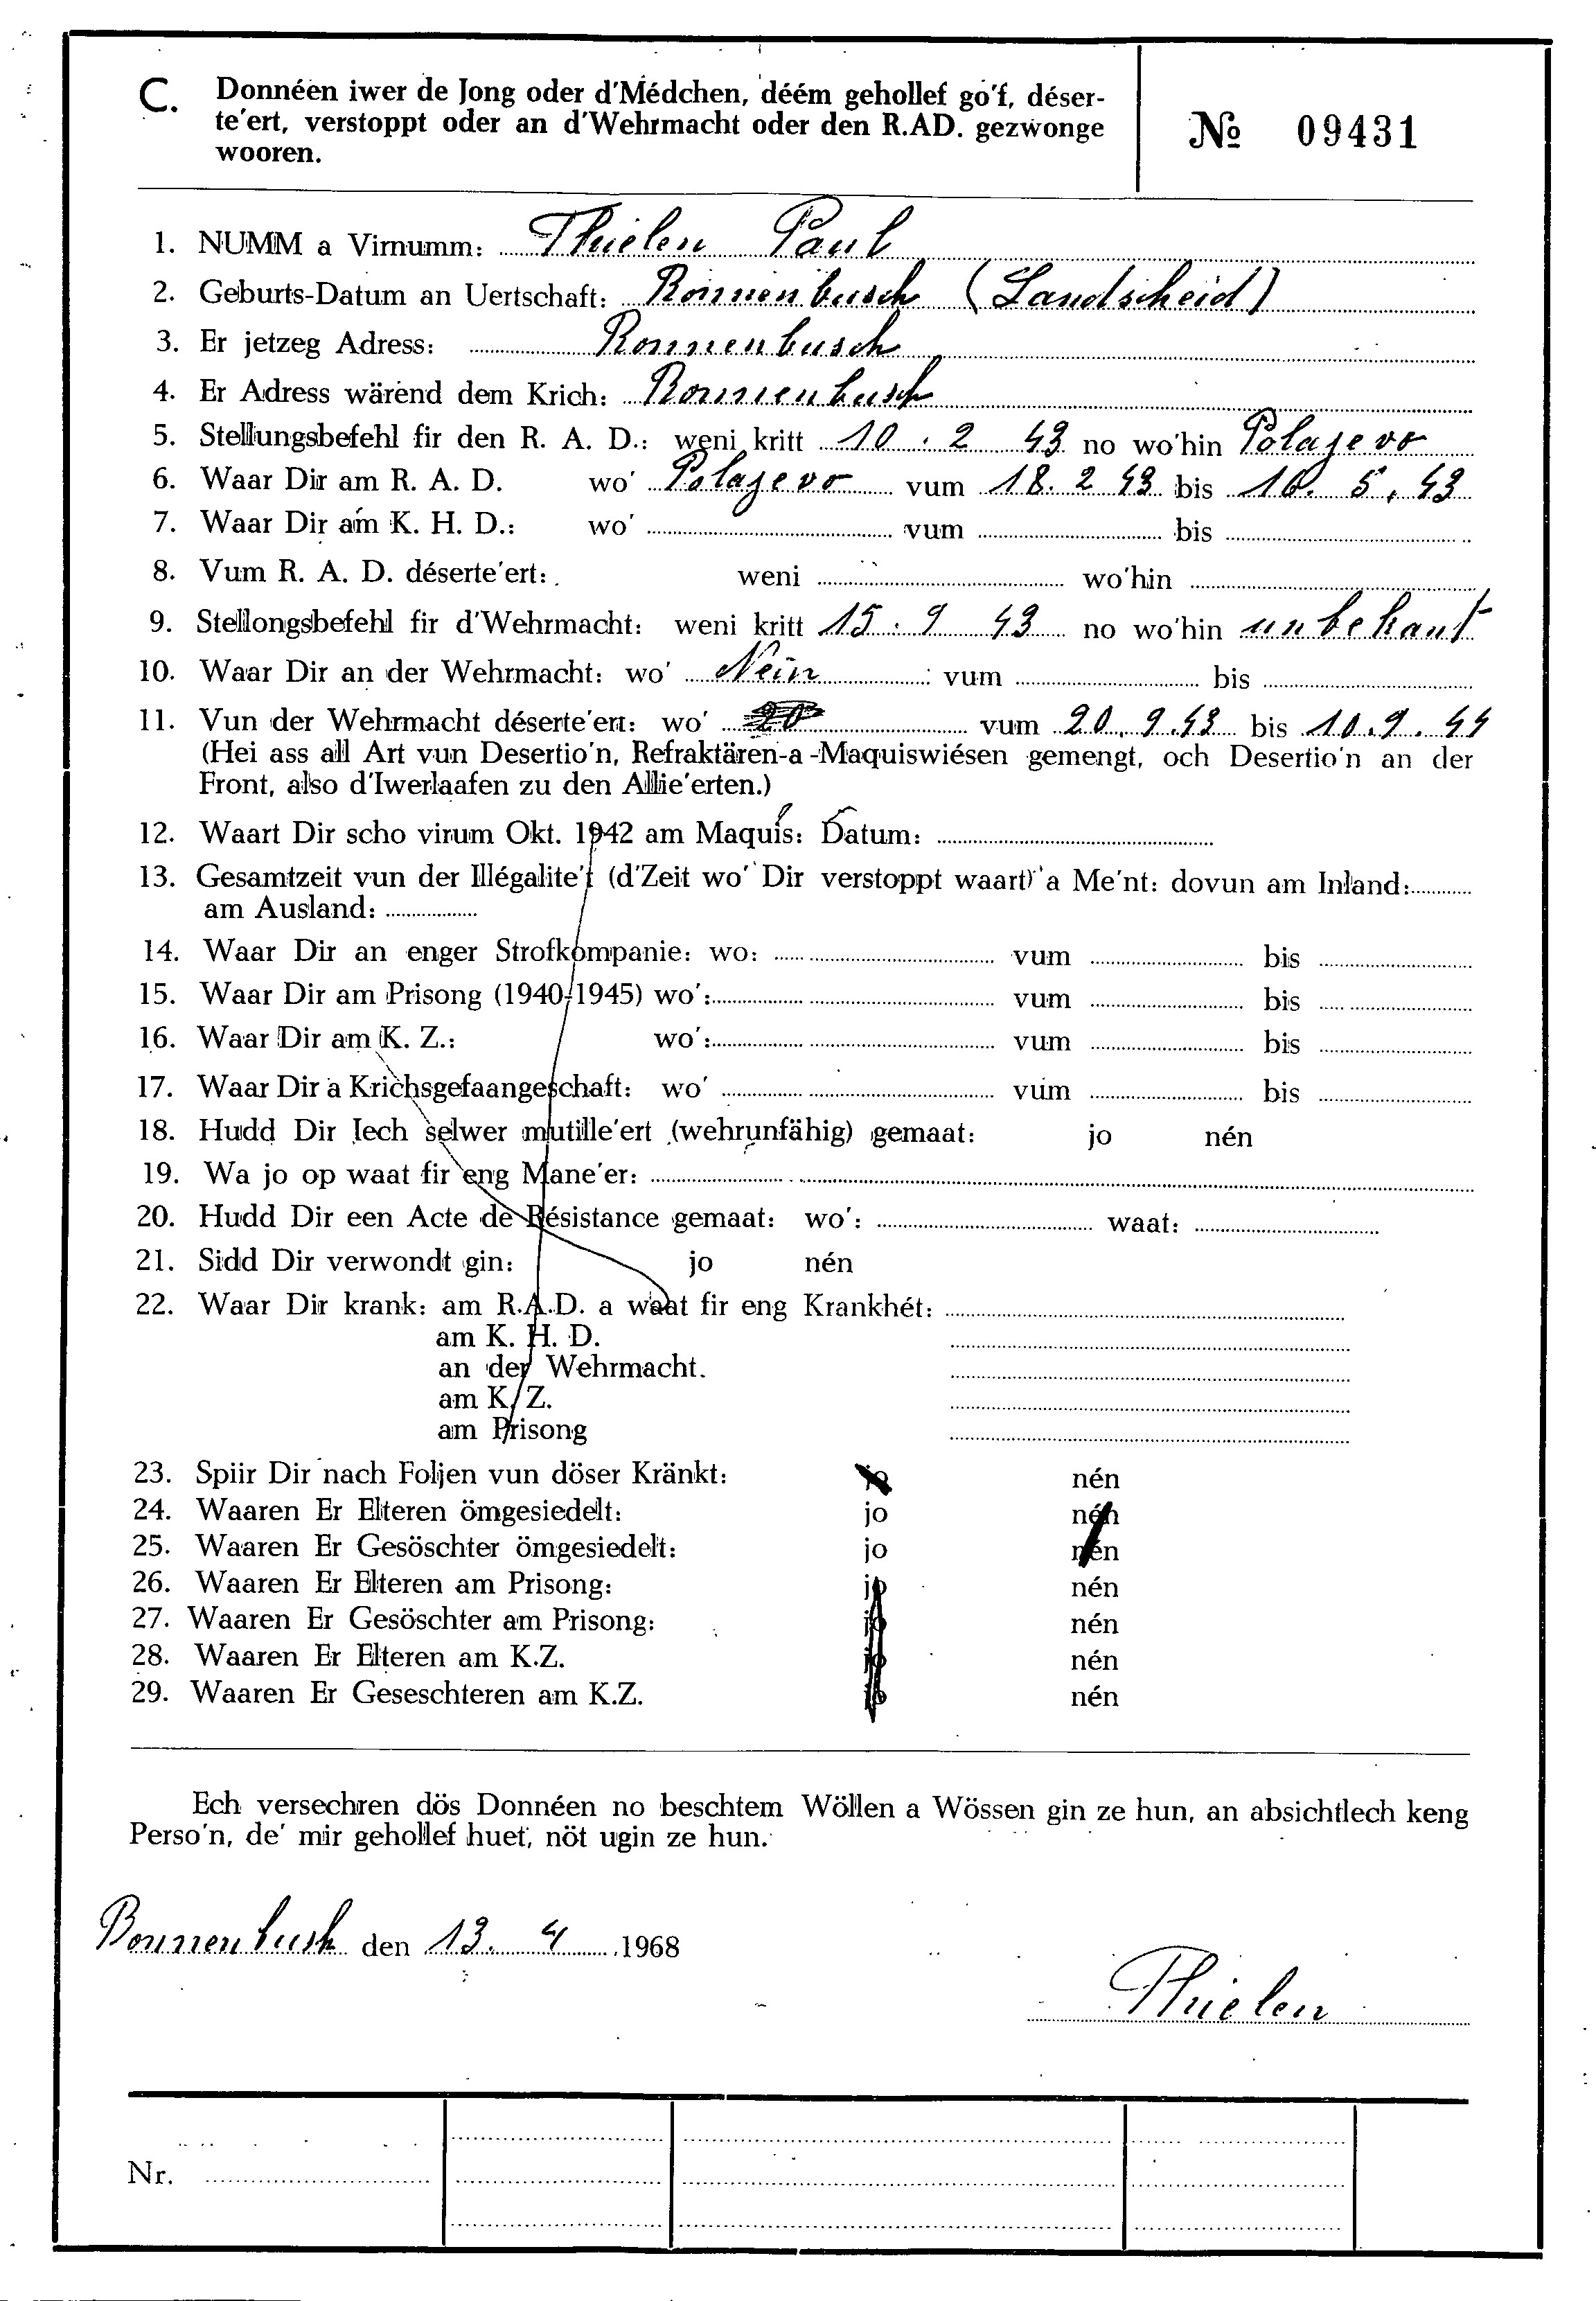 C. Donnéen iwer de Jong oder d'Médchen, déém gehollef go'f, déser-
te'ert, verstoppt oder an d'Wehrmacht oder den R.AD. gezwonge
wooren.
№ 09431
1. NUMM a Virnumm: Thielen Paul
2. Geburts-Datum an Uertschaft: Ronnenbusch (Landscheid)
3. Er jetzeg Adress: Ronnenbusch
4. Er Adress wärend dem Krich: Ronnenbusch
5. Stellungsbefehl fir den R. A. D.: weni kritt 10. 2 43 no wo'hin Polajevo
6. Waar Dir am R. A. D. wo' Polajevo vum 18. 2 43 bis 10. 5. 43
7. Waar Dir am K. H. D.: wo' vum bis
8. Vum R. A. D. déserte'ert: weni wo'hin
9. Stellongsbefehl fir d'Wehrmacht: weni kritt 15. 9 43 no wo'hin unbekant
10. Waar Dir an der Wehrmacht: wo' Nein vum bis
11. Vun der Wehrmacht déserte'ert: wo' vum 20. 9. 43 bis 10. 9. 44
(Hei ass all Art vun Desertio'n, Refraktären-a-Maquiswiésen gemengt, och Desertio'n an der
Front, also d'Iwerlaafen zu den Allie'erten.)
12. Waart Dir scho virum Okt. 1942 am Maquis: Datum:
13. Gesamtzeit vun der Illégalite't (d'Zeit wo' Dir verstoppt waart) a Me'nt: dovun am Inland:
am Ausland:
14. Waar Dir an enger Strofkompanie: wo: vum bis
15. Waar Dir am Prisong (1940-1945) wo': vum bis
16. Waar Dir am K. Z.: wo': vum bis
17. Waar Dir a Krichsgefaangeschaft: wo' vum bis
18. Hudd Dir Iech selwer mutille'ert (wehrunfähig) gemaat: jo nén
19. Wa jo op waat fir eng Mane'er:
20. Hudd Dir een Acte de Résistance gemaat: wo': waat:
21. Sidd Dir verwondt gin: jo nén
22. Waar Dir krank: am R.A.D. a waat fir eng Krankhét:
am K. H. D.
an der Wehrmacht.
am K. Z.
am Prisong
23. Spiir Dir nach Foljen vun döser Kränkt: jo nén
24. Waaren Er Elteren ömgesiedelt: jo nén
25. Waaren Er Gesöschter ömgesiedelt: jo nén
26. Waaren Er Elteren am Prisong: jo nén
27. Waaren Er Gesöschter am Prisong: jo nén
28. Waaren Er Elteren am K.Z. jo nén
29. Waaren Er Geseschteren am K.Z. jo nén
Ech versechren dös Donnéen no beschtem Wöllen a Wössen gin ze hun, an absichtlech keng
Perso'n, de' mir gehollef huet, nöt ugin ze hun.
Bonnenbusch den 13. 4 1968
Thielen
Nr.